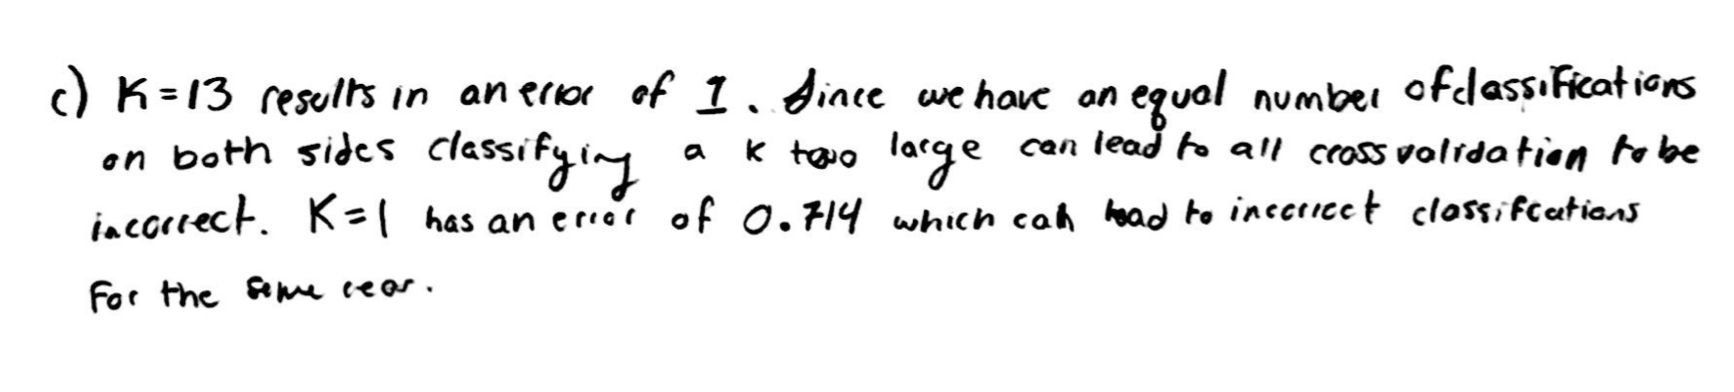 c) K=13 results in an error of 1. Since we have an equal number of classifications
on both sides classifying a k too large can lead to all cross validation to be
incorrect. K=1 has an error of 0.714 which can lead to incorrect classifcations
For the same